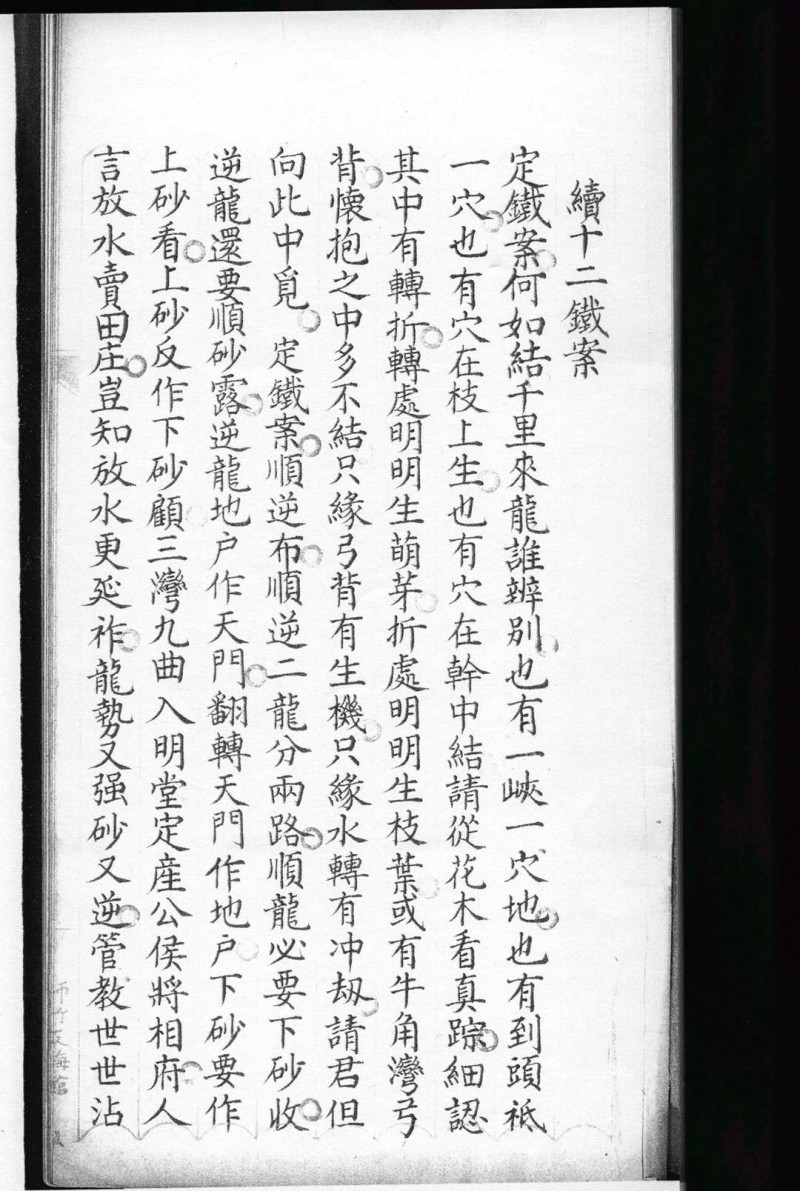 續十二鐵案
定鐵案何如結千里來龍誰辨別也有一峽一穴地也有到頭祗
一穴也有穴在枝上生也有穴在幹中結請從花木看真踪細認
其中有轉折轉處明明生萌芽折處明明生枝葉或有牛角灣弓
背懷抱之中多不結只緣弓背有生機只緣水轉有冲刼請君但
向此中覓　定鐵案順逆布順逆二龍分兩路順龍必要下砂收
逆龍還要順砂露逆龍地户作天門翻轉天門作地户下砂要作
上砂看上砂反作下砂顧三灣九曲入明堂定産公侯將相府人
言放水賣田庄豈知放水更延祚龍勢又强砂又逆管教世世沾